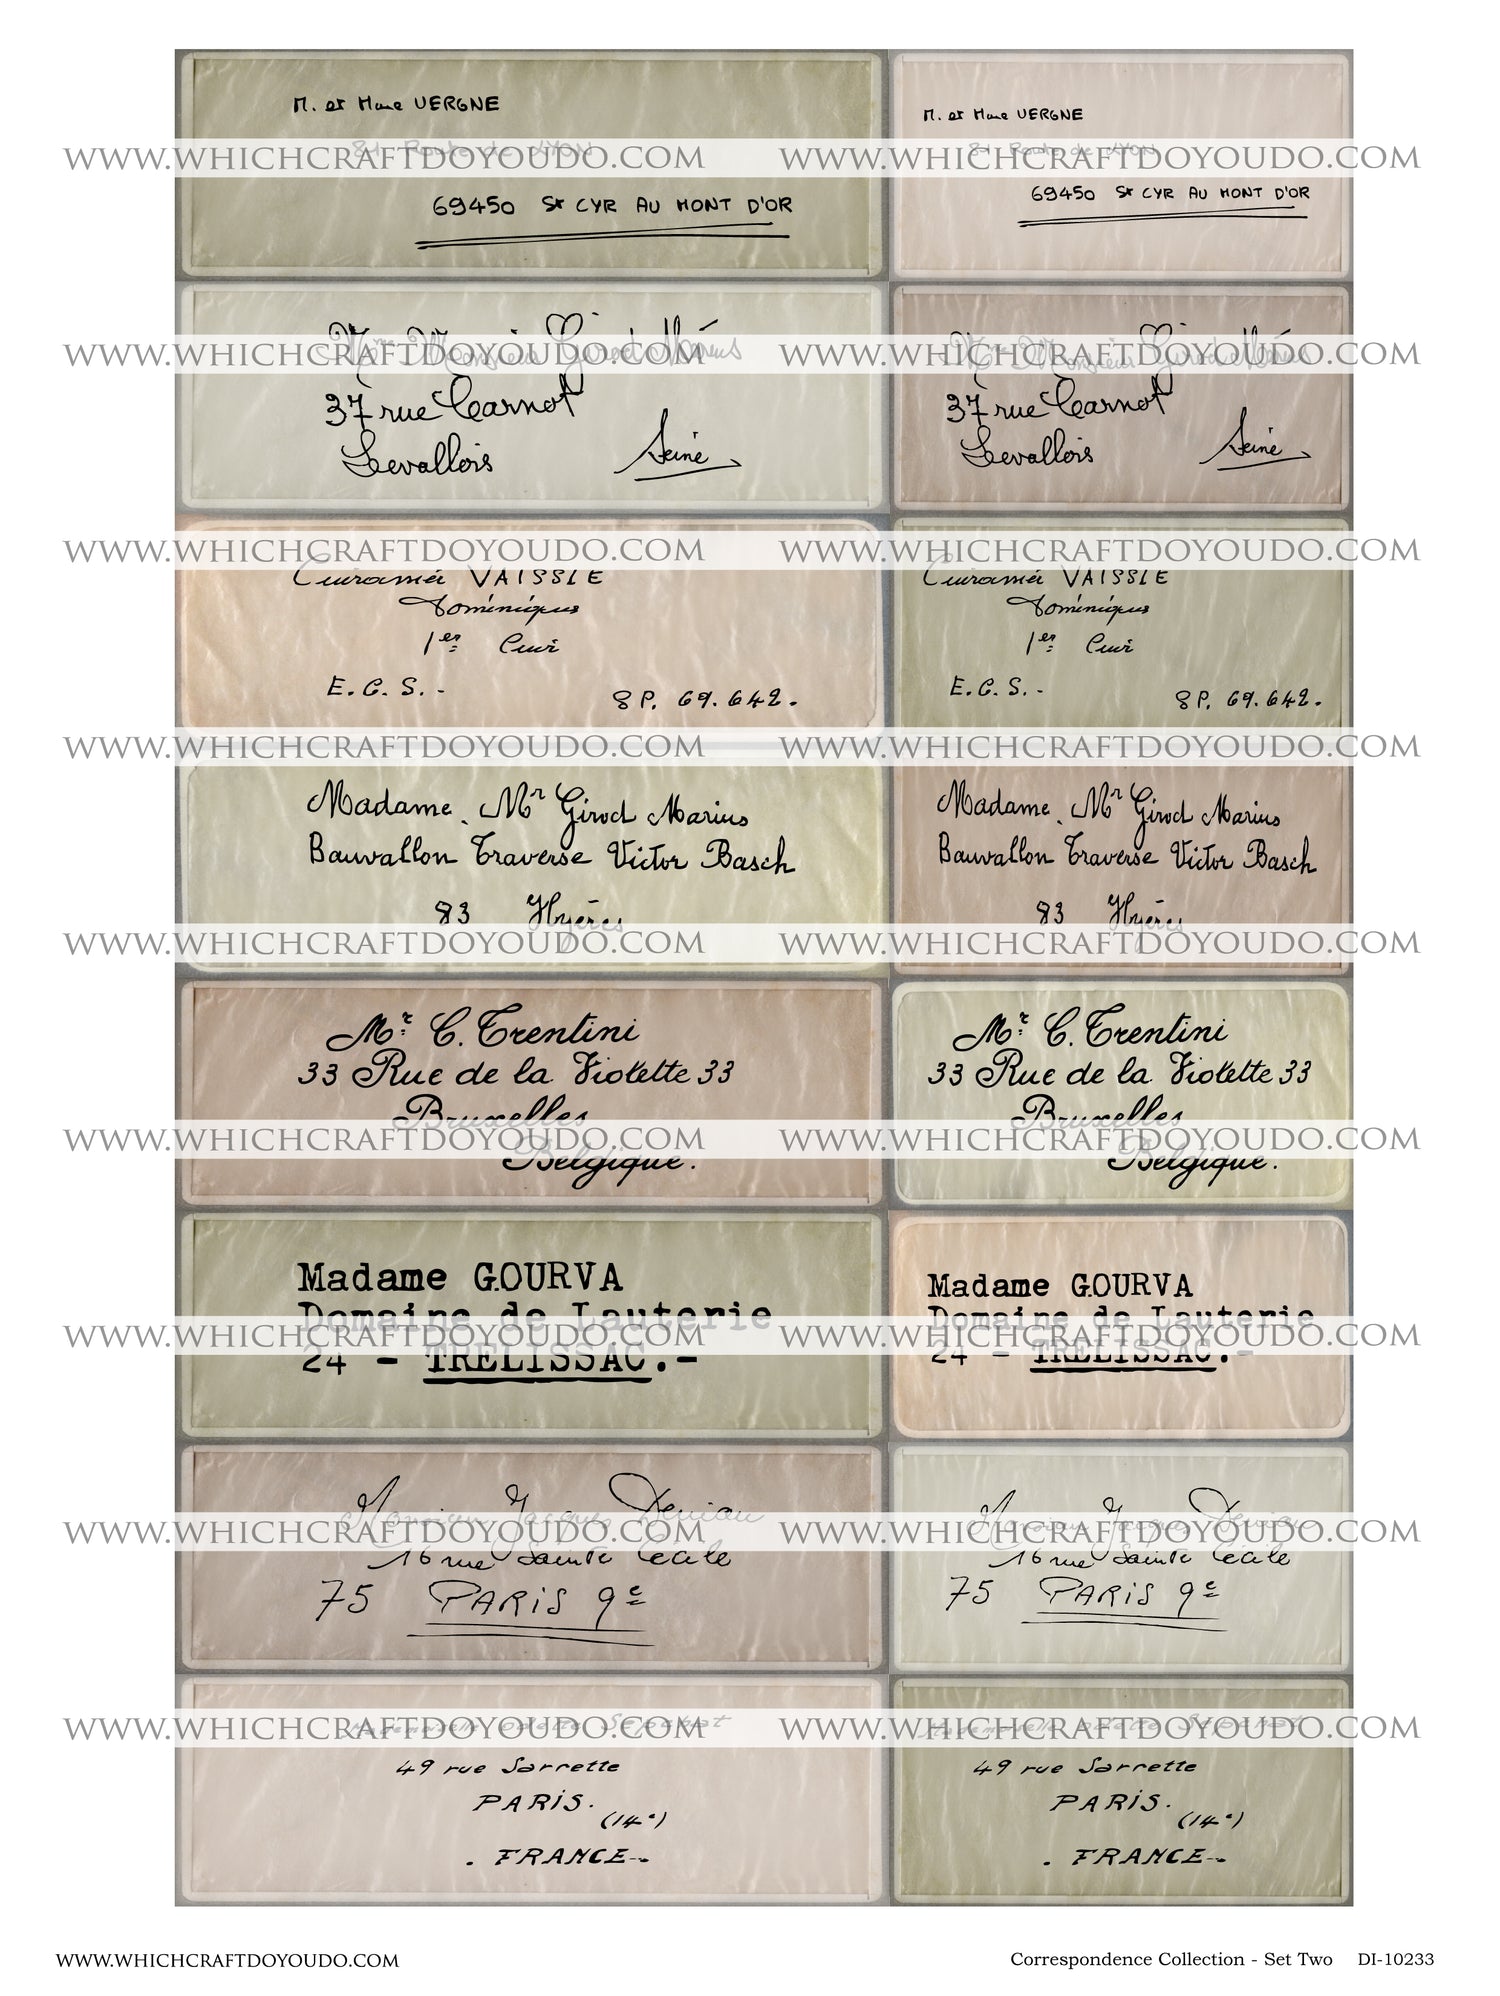 M. et Mme VERGNE
M. et Mme VERGNE
81 Route de LYON
81 Route de LYON
WWW.WHICHCRAFTDOYOUDO.COM WWW.WHICHCRAFTDOYOUDO.COM
69450 St CYR AU MONT D'OR
69450 St CYR AU MONT D'OR
WWW.WHICHCRAFTDOYOUDO.COM WWW.WHICHCRAFTDOYOUDO.COM
Monsieur Girod Marius
37 rue Carnot
Levallois Seine
Monsieur Girod Marius
37 rue Carnot
Levallois Seine
WWW.WHICHCRAFTDOYOUDO.COM WWW.WHICHCRAFTDOYOUDO.COM
VAISSIE
Dominique
1er
E.C.S.-
SP. 69.642.
VAISSIE
Dominique
1er
E.C.S.-
SP. 69.642.
WWW.WHICHCRAFTDOYOUDO.COM WWW.WHICHCRAFTDOYOUDO.COM
Madame. Mr Girod Marius
Bauvallon Traverse Victor Basch
83 Hyères
Madame. Mr Girod Marius
Bauvallon Traverse Victor Basch
83 Hyères
WWW.WHICHCRAFTDOYOUDO.COM WWW.WHICHCRAFTDOYOUDO.COM
Mr. C. Trentini
33 Rue de la Violette 33
Bruxelles
Belgique.
Mr. C. Trentini
33 Rue de la Violette 33
Bruxelles
Belgique.
WWW.WHICHCRAFTDOYOUDO.COM WWW.WHICHCRAFTDOYOUDO.COM
Madame GOURVA
Domaine de Lauterie
24 - TRELISSAC.-
Madame GOURVA
Domaine de Lauterie
24 - TRELISSAC.-
WWW.WHICHCRAFTDOYOUDO.COM WWW.WHICHCRAFTDOYOUDO.COM
Monsieur Jacques
16 rue Sainte Cécile
75 PARIS 9e
Monsieur Jacques
16 rue Sainte Cécile
75 PARIS 9e
WWW.WHICHCRAFTDOYOUDO.COM WWW.WHICHCRAFTDOYOUDO.COM
Mademoiselle Odette
49 rue Sarrette
PARIS.
(14e)
. FRANCE-.
Mademoiselle Odette
49 rue Sarrette
PARIS.
(14e)
. FRANCE-.
WWW.WHICHCRAFTDOYOUDO.COM WWW.WHICHCRAFTDOYOUDO.COM
WWW.WHICHCRAFTDOYOUDO.COM
Correspondence Collection - Set Two DI-10233